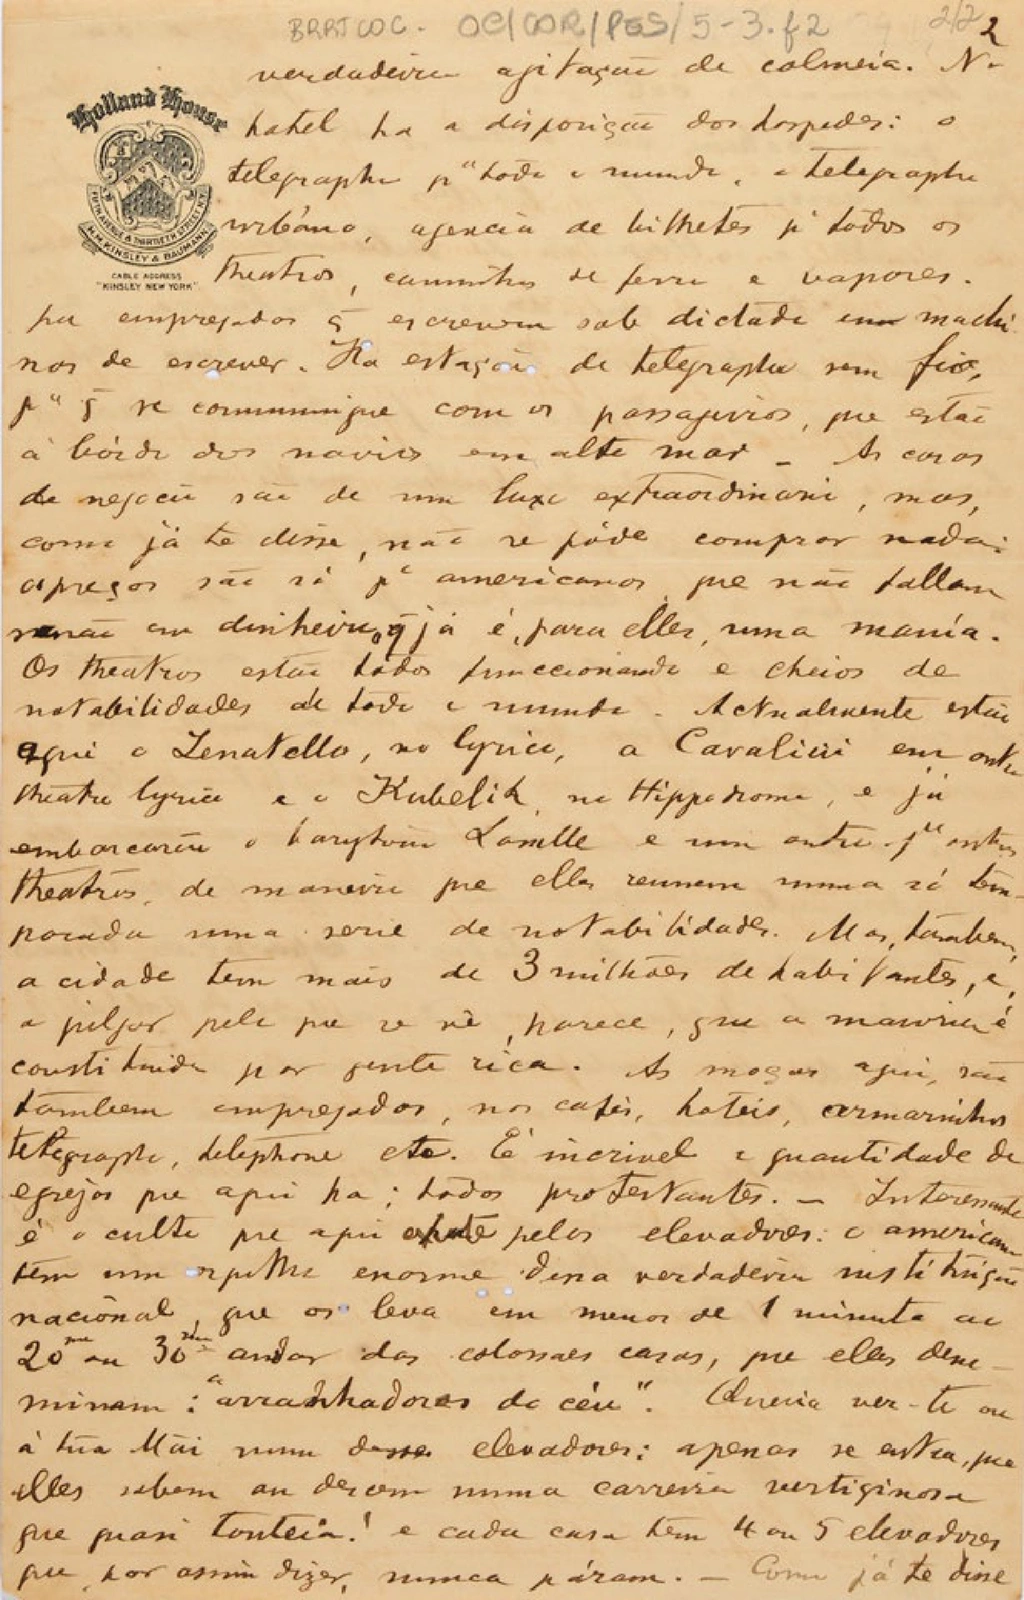 BRRJCOC. OC/COR/PGS/5-3.f2
2/2 2
Holland House
FIFTH AVENUE & THIRTIETH STREET N.Y.
H.M. KINSLEY & BAUMANN
CABLE ADDRESS
"KINSLEY NEW YORK"
verdadeira agitação de colmeia. No
hotel ha a disposição dos hospedes: o
telegrapho pª todo o mundo, o telegrapho
urbâno, agencia de bilhetes pª todos os
theatros, caminhos de ferro e vapores.
ha empregados q̃ escrevem sob dictado em machi-
nas de escrever. Ha estação de telegrapho sem fio,
pª q̃ se communique com os passageiros, que estão
á bórdo dos navios em alto mar _ As casas
de negocio são de um luxo extraordinario, mas,
como já te disse, não se póde comprar nada:
os preços são só pª americanos que não fallam
senão em dinheiro, q̃ já é, para elles, uma mania.
Os theatros estão todos funccionando e cheios de
notabilidades de todo o mundo. Actualmente estão
aqui o Zenatello, no lyrico, a Cavalieri em outro
theatro lyrico e o Kubelik, no Hippodromo, e já
embarcarão o barytono e um outro pª outros
theatros, de maneira que elles reunem numa só tem-
porada uma serie de notabilidades. Mas, támbem,
a cidade tem mais de 3 milhões de habitantes, e,
a julgar pelo que se vê, parece, que a maioria é
constituida por gente rica. As moças aqui, são
támbem empregadas, nos cafés, hoteis, armarinhos
telegrapho, telephone etc. É incrivel a quantidade de
egrejas que aqui ha; todas protestantes. — Interessante
é o culto que aqui pelos elevadores: o americano
tem um orgulho enorme desa verdadeira instituição
nacional que os leva em menos de 1 minuto ao
20mo ou 30mo andar das colossaes casas, que elles deno-
minam: "arranhadores do céu". Queria ver-te ou
á túa Mãi num desses elevadores: apenas se entra, que
elles sobem ou descem numa carreira vertiginosa
que quasi tonteia! e cada casa tem 4 ou 5 elevadores
que, por assim dizer, nunca páram. — Como já te disse